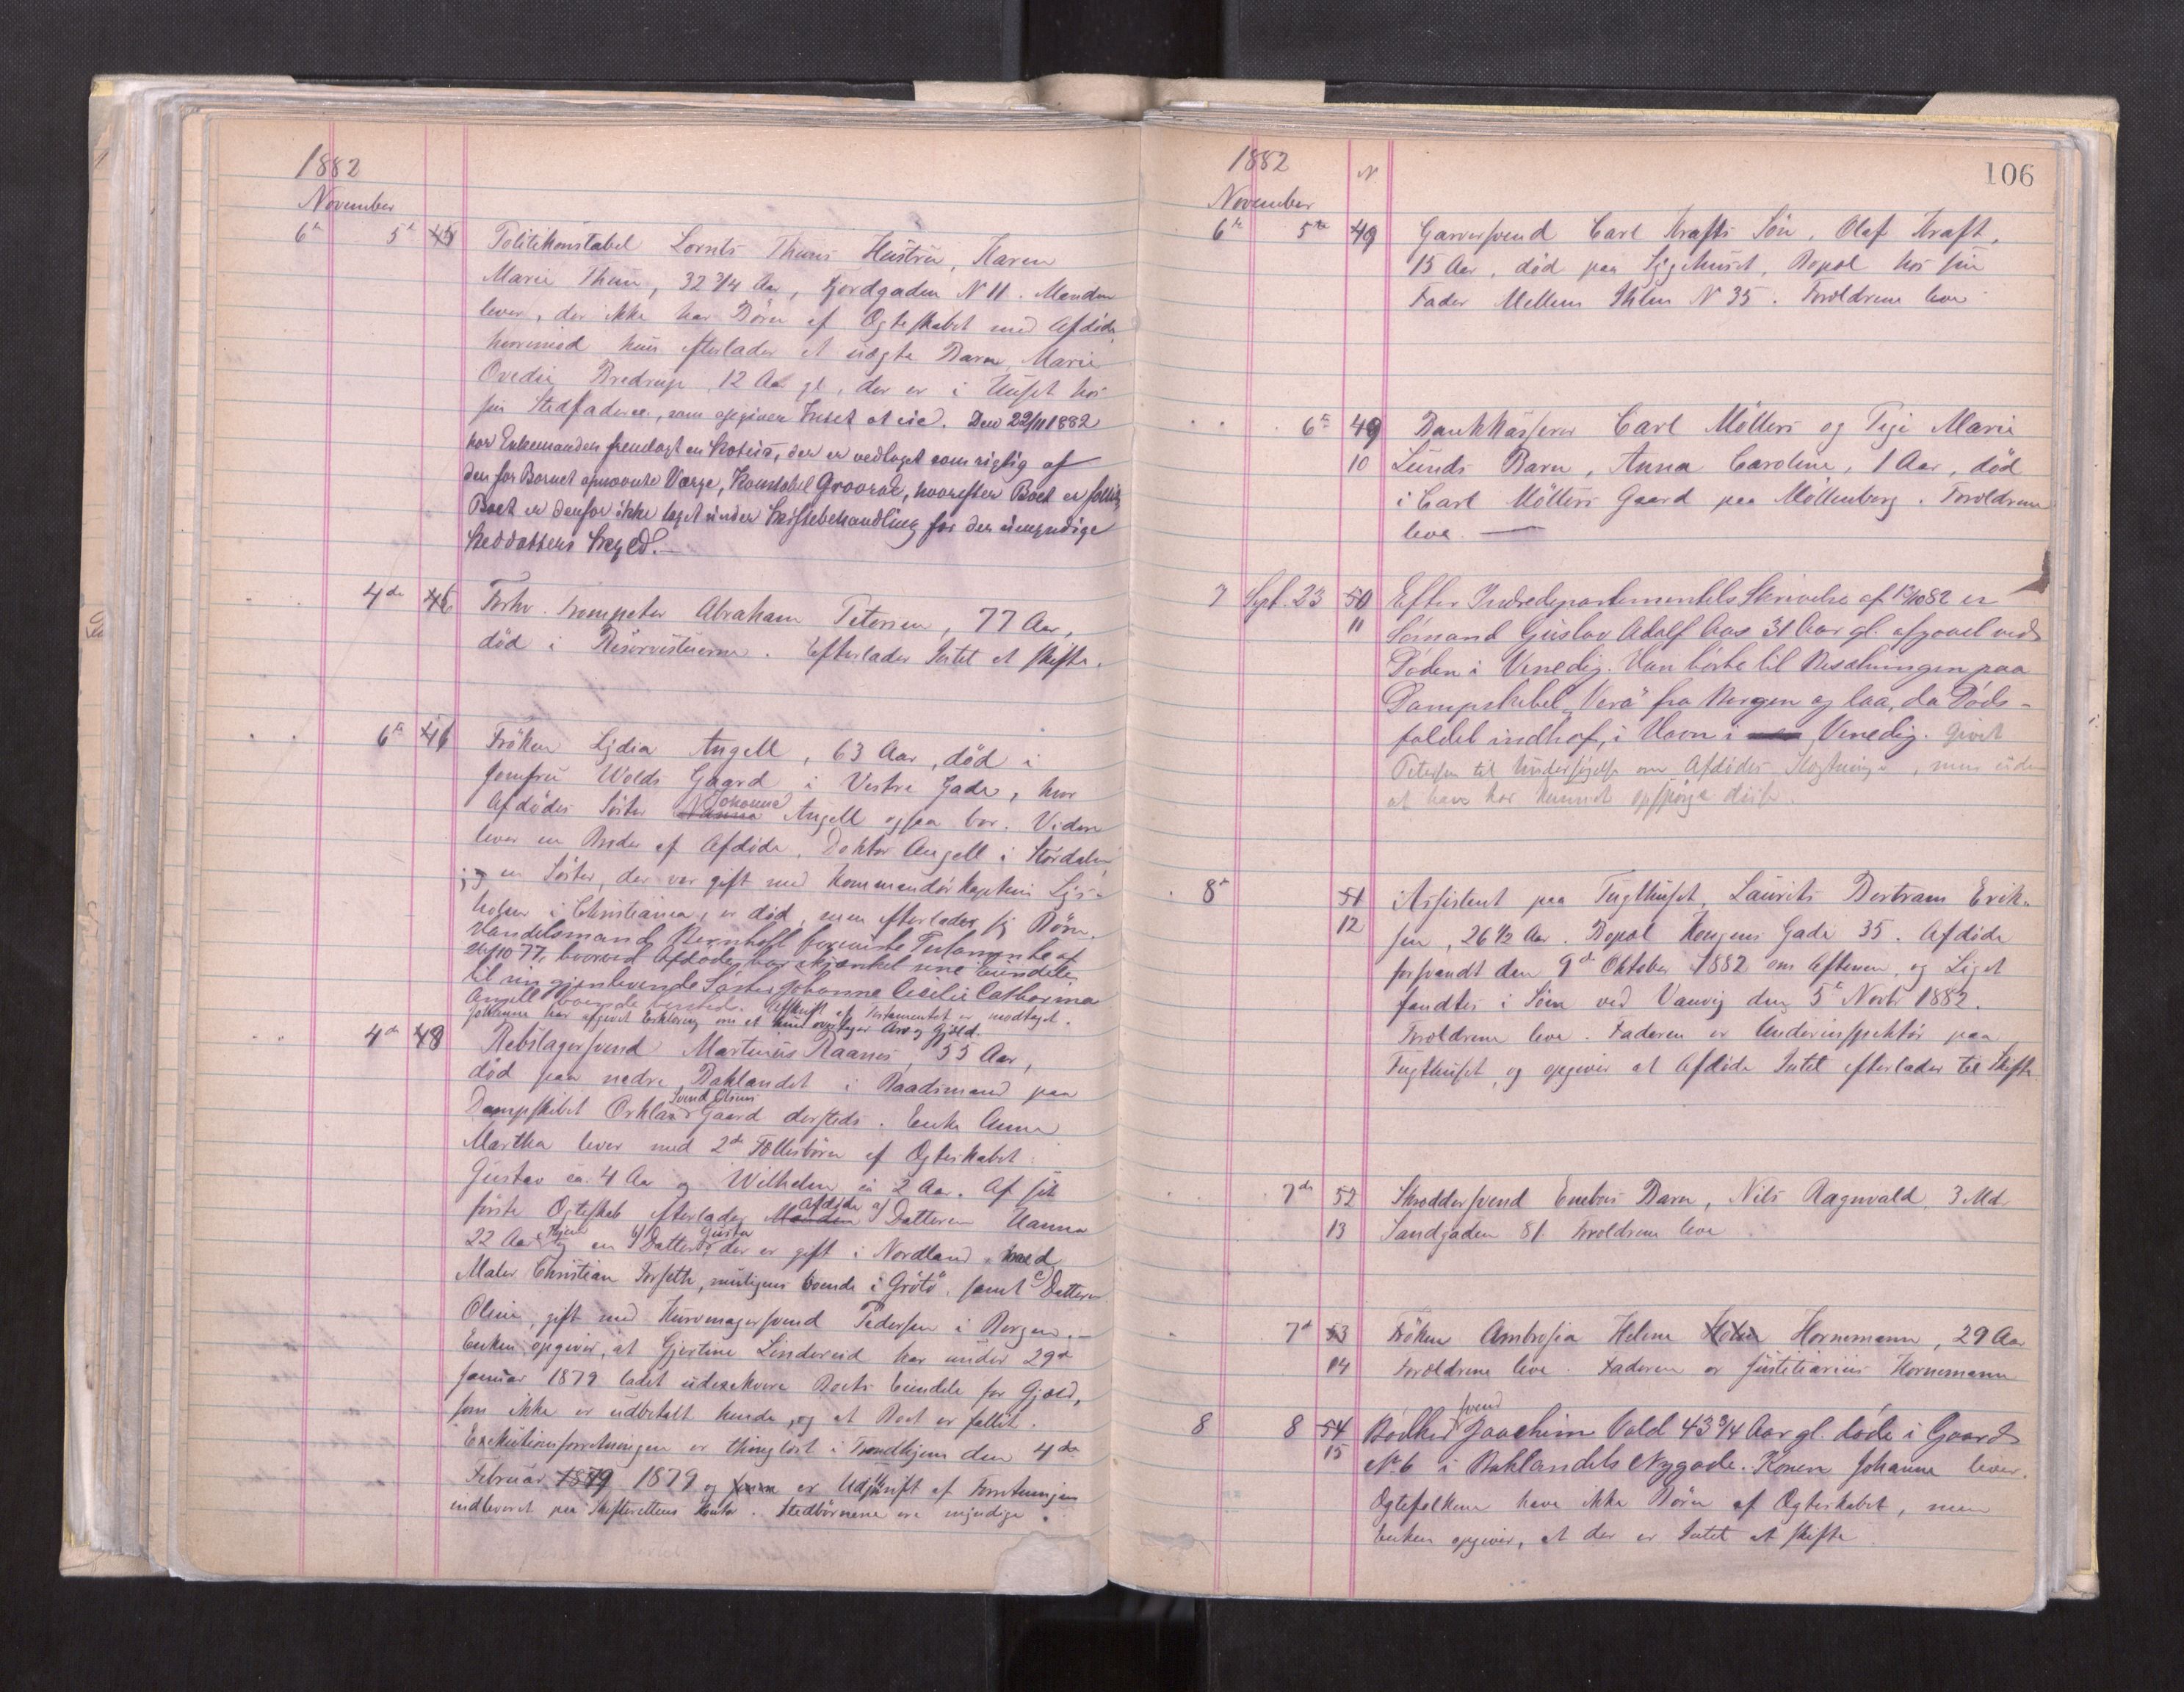 1882
November
6te 5te 45 Politikonstabel Lornts Thuns Hustru, Karen
Marie Thun, 32 3/4 Aar, Fjordgaden N 11. Manden
lever, der ikke har Børn af Ægteskabet med Afdøde,
hvorimod hun efterlader et uægte Barn, Marie
Ovedie Bredrup 12 Aar gl, der er i Huset hos
sin Stedfader, som opgiver Intet at eie. Den 22/11 1882
har Enkemanden fremlagt en Status, der er vedtaget som rigtig af
den for Barnet opnævnte Værge, Konstabel, hvorefter Boet er fallit,
Boet er derfor ikke taget under Skiftebehandling for den umyndige
Steddatters Skyld.—
4de 46 Forhv. Trompeter Abraham Petersen, 77 Aar,
død i. Efterlader Intet at skifte.
6te 46 Frøken Lydia Angell, 63 Aar, død i
Jomfru Wolds Gaard i Vestre Gade, hvor
Afdødes Søster Johanna Angell ogsaa bor. Videre
lever en Broder af Afdøde, Doktor Angell i Stördalen
; og en Søster, der var gift med Kommandørkaptein
i Christiania, er død, men efterlader sig Børn.
Handelsmand Bernhoft foreviste Testamente af
26/10 77, hvorved Afdøde har skjænket sine Eiendele
til sin gjenlevende Søster Johanne Cecilie Catharina
Angell boende hersteds. Afskrift af Testamentet er modtaget.
Johanne har afgivet Erklæring om at hun overtager Arv og Gjæld.
4de 48 Rebslagersvend Martinus Raanes, 55 Aar,
død paa nedre Baklandet i Baadsmand paa
Dampskibet Orkla Svend Olsens Gaard dersteds. Enke Anna
Martha lever med 2de Fællesbørn af Ægteskabet:
Gustav ca. 4 Aar og Wilhelm ca 2 Aar. Af sit
første Ægteskab efterlader Manden Afdøde a) Datteren Hanna
22 Aar Hjem og en b) Datter Gusta der er gift i Nordland med
Maler Christian Forseth, muligens boende i Grötö, samt c) Datteren
Oline, gift med Kurvmagersvend Pedersen i Bergen.—
Enken opgiver, at Gjertine Lindereid har under 29de
Januar 1879 ladet udexekvere Boets Eiendele for Gjæld,
som ikke er udbetalt hende, og at Boet er fallit.
Exekutionsforretningen er thinglæst i Trondhjem den 4de
Februar 1879 1879 og er Udskrift af Forretningen
indleveret paa Skifterettens Kontor. Stedbørnene ere myndige.
1882 N 106
November
6te 5te 49 Garversvend Carl Krafts Søn, Olaf Kraft,
15 Aar, død paa Sygehuset, Bopæl hos sin
Fader Mellem Ihlen N 35. Forældrene leve
6te 49 Bankkasserer Carl Möllers og Pige Marie
10 Lunds Barn, Anna Caroline, 1 Aar, død
i Carl Möllers Gaard paa Möllenberg. Forældrene
leve. —
7 Sept. 23 50 Efter Indredepartementets Skrivelse af 12/10 82 er
11 Sømand Gustav Adolf Aas 31 Aar gl. afgaaet ved
Døden i Venedig. Han hörte til Besætningen paa
Dampskibet „Vera" fra Bergen og laa, da Døds-
faldet indtraf, i Havn i Venedig. Givet
Petersen til Undersøgelse om Afdødes Slægtninge, men uden
at have har kunnet opspørge disse.
8de 51 Assistent paa Tugthuset, Laurits Bertram Erik-
12 sen, 26 1/2 Aar. Bopæl Kongens Gade 35. Afdøde
forsvandt den 9de Oktober 1882 om Aftenen, og Liget
fandtes i Söen ved Vanvig den 5te Novbr 1882.
Forældrene leve. Faderen er Underinspektör paa
Tugthuset, og opgiver at Afdøde Intet efterlader til Skifte.
7de 52 Skræddersvend Enebos Barn, Nils Ragnvald, 3 Md.
13 Sandgaden 81. Forældrene leve.
7de 53 Frøken Ambrosia Helene Hornemann, 29 Aar
14 Forældrene leve. Faderen er Justitiarius Hornemann
8 8 54 Bødkersvend Joachim Vold 43 3/4 Aar gl. døde i Gaard
15 N. 6 i Baklandets Nygade. Konen Johanna lever.
Ægtefolkene have ikke Børn af Ægteskabet, men
Enken opgiver, at der er Intet at skifte